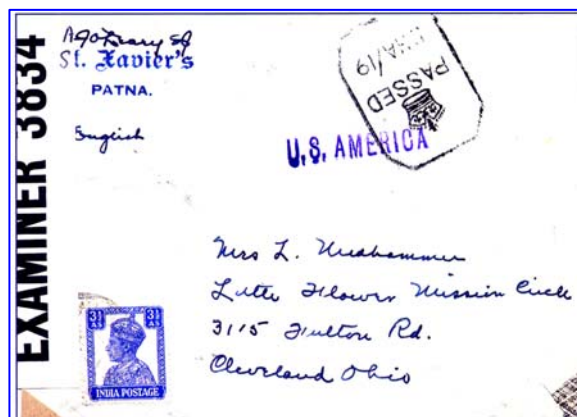 EXAMINER 3834
St. Xavier's
PATNA.
English
PASSED
U.S. AMERICA
Mrs L.
Little Flower Mission Circle
3115 Fulton Rd.
Cleveland Ohio
3½ 3½
AS AS
INDIA POSTAGE